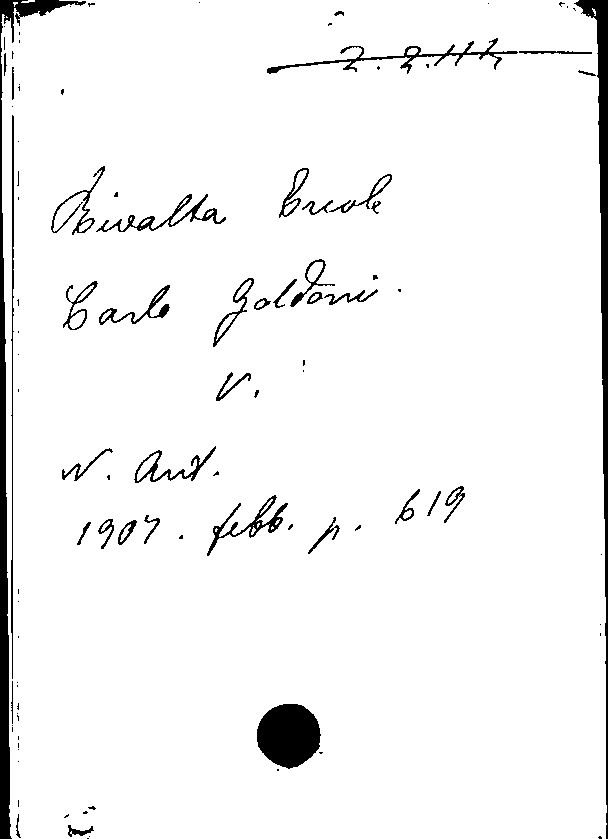 Rivalta Ercole
Carlo Goldoni.
V.
N. Ant.
1907. febb. p. 619